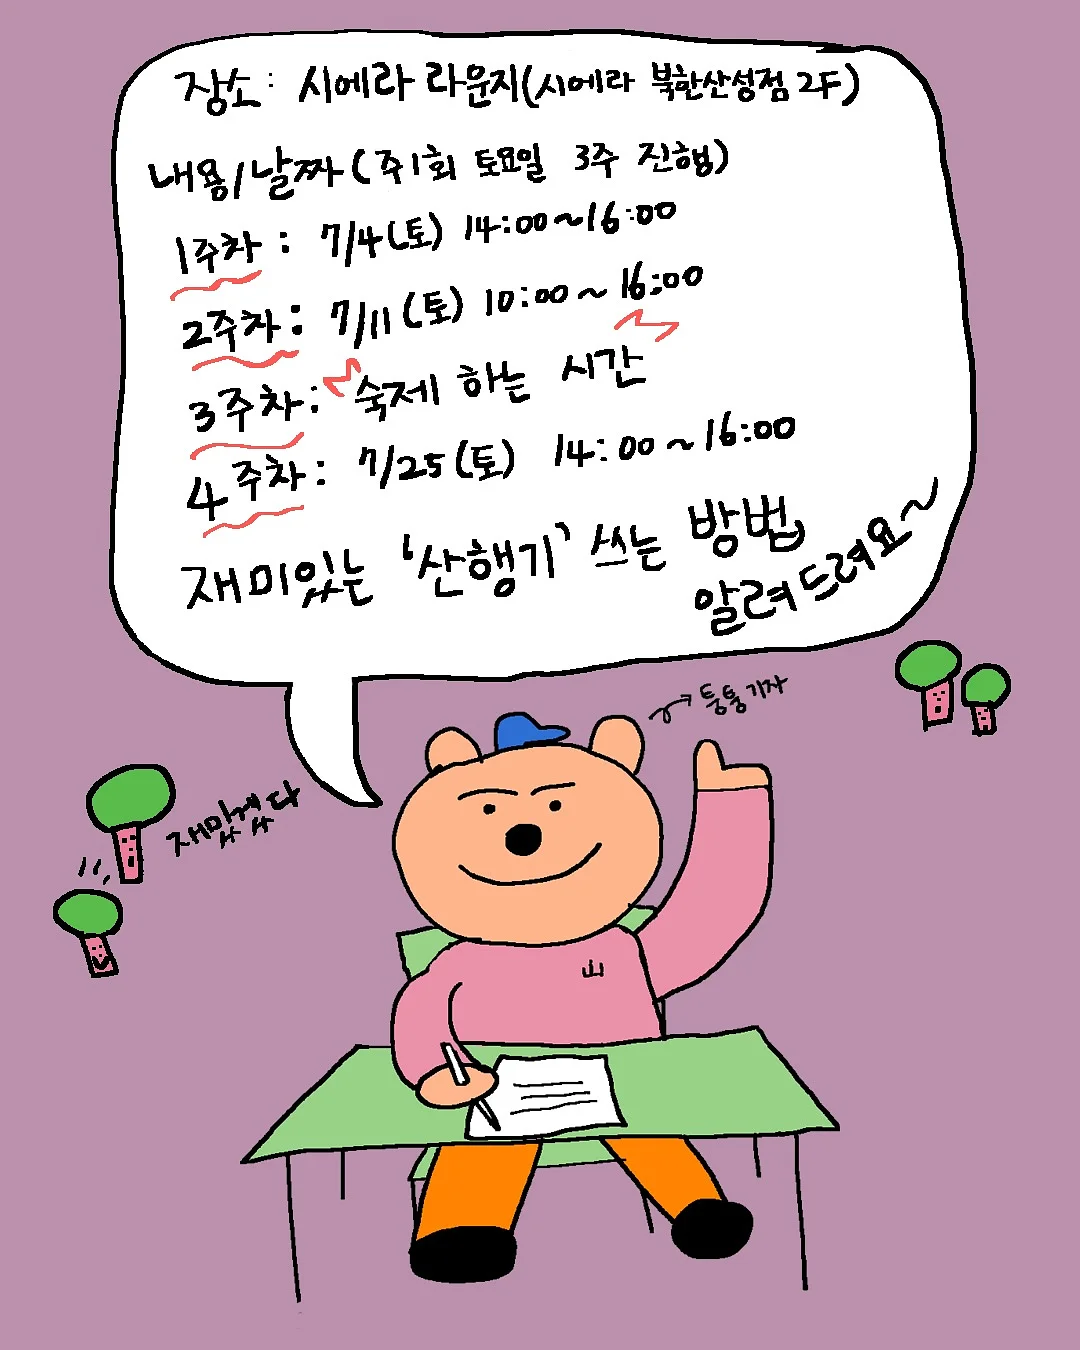 장소: 시에라 라운지(시에라 북한산성점 2F)
내용/날짜(주1회 토요일 3주 진행)
1주차: 7/4(토) 14:00~16:00
2주차: 7/11(토) 10:00~16:00
3주차: 숙제 하는 시간
4주차: 7/25(토) 14:00~16:00
재미있는 '산행기' 쓰는 방법
알려드려요~
퉁퉁기자
재밌겠다
山